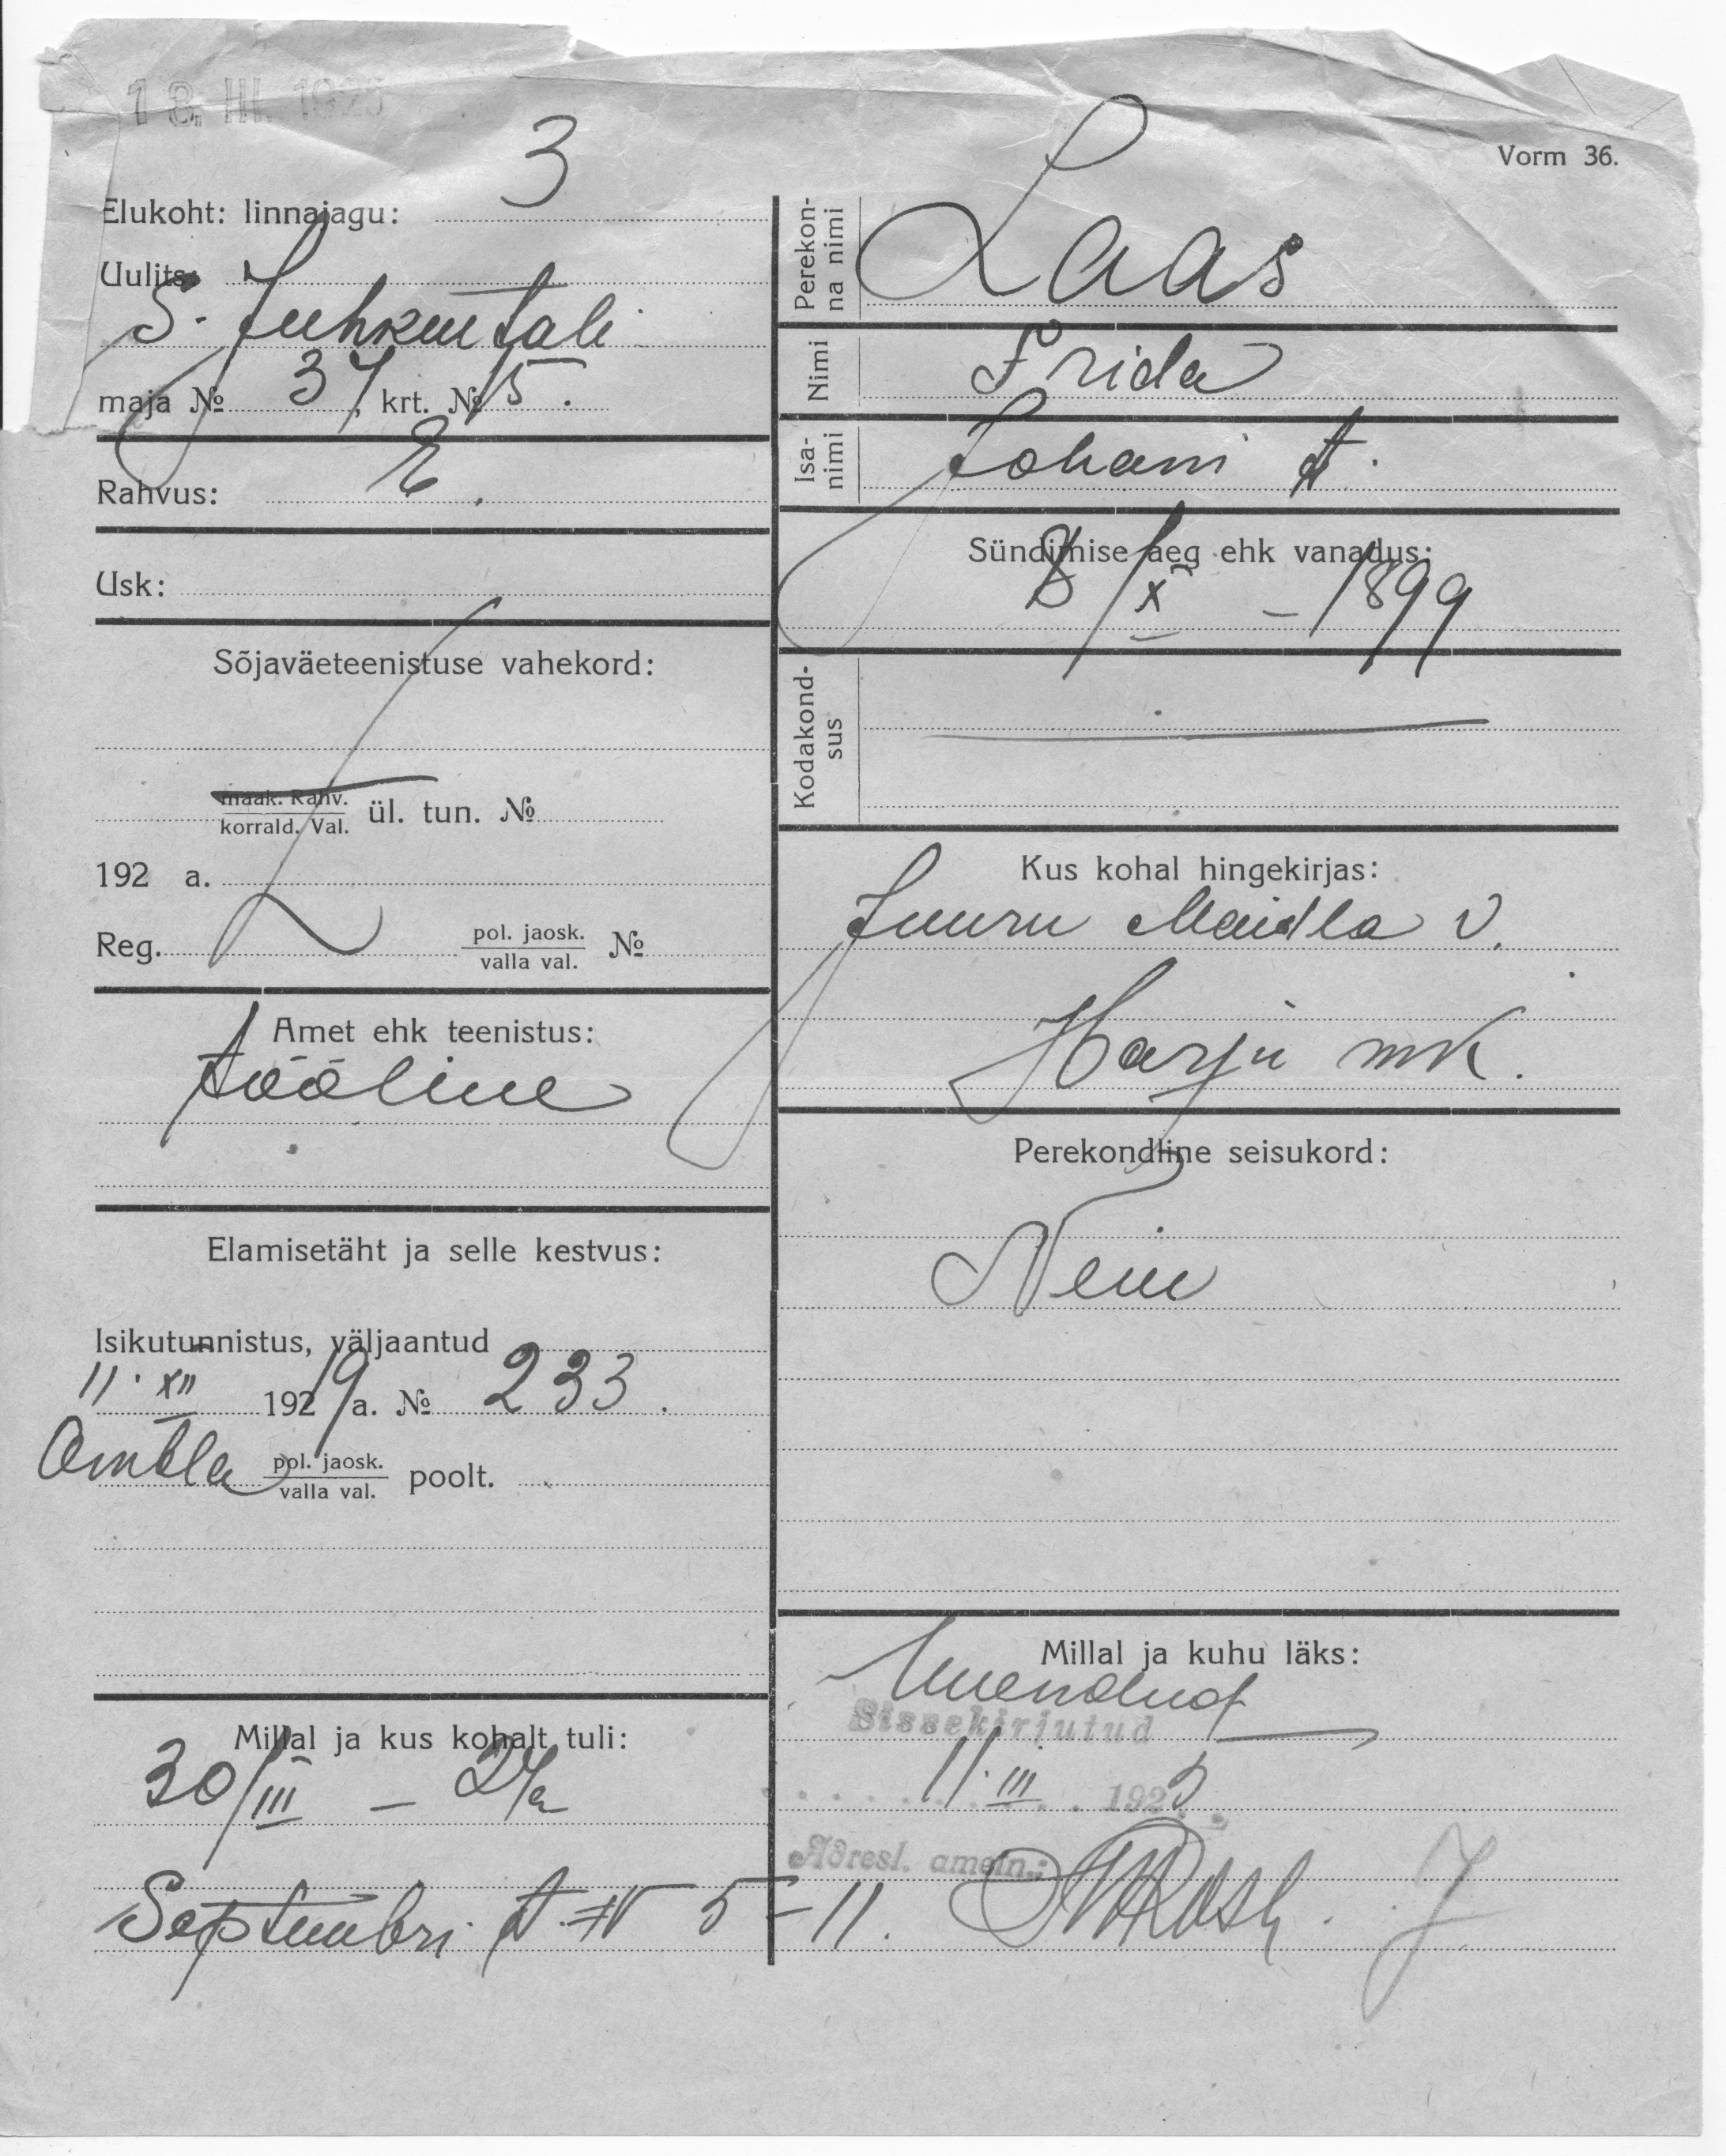 18. III. 1925
Vorm 36.
Elukoht: linnajagu: 3
Uulits:
S. Juhkentali
maja № 37, krt. № 15.
Rahvus: E.
Usk:
Sõjaväeteenistuse vahekord:
maak. Rahv.
korrald. Val. ül. tun. №
192 a.
Reg. pol. jaosk.
valla val. №
Amet ehk teenistus:
tööline
Elamisetäht ja selle kestvus:
Isikutunnistus, väljaantud
11. XII 19219 a. № 233.
Ambla pol. jaosk.
valla val. poolt.
Millal ja kus kohalt tuli:
30/III – 24 a
Septembri t. № 5–11.
Perekon-
na nimi Laas
Nimi Frida
Isa-
nimi Johani t.
Sündimise aeg ehk vanadus:
8/X – 1899
Kodakond-
sus
Kus kohal hingekirjas:
Juuru Maidla v.
Harju mk.
Perekondline seisukord:
Neiu
Millal ja kuhu läks:
Uuendud
Sissekirjutud
11. III 1925
Adresl. ametn.: